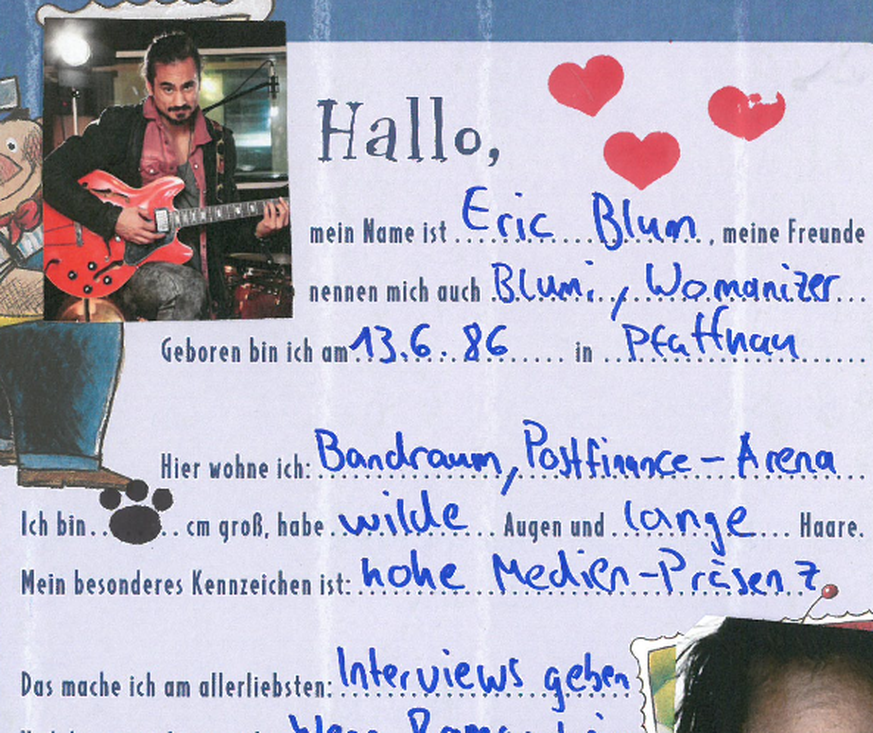 Hallo,
mein Name ist Eric Blum, meine Freunde
nennen mich auch Blumi, Womanizer
Geboren bin ich am 13.6.86 in Pfaffnau
Hier wohne ich: Bandraum, Postfinance-Arena
Ich bin cm groß, habe wilde Augen und lange Haare.
Mein besonderes Kennzeichen ist: hohe Medien-Präsenz
Das mache ich am allerliebsten: Interviews geben